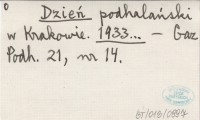 Dzień podhalański
w Krakowie. 1933... – Gaz
Podh. 21, nr 14.
BT/018/0887